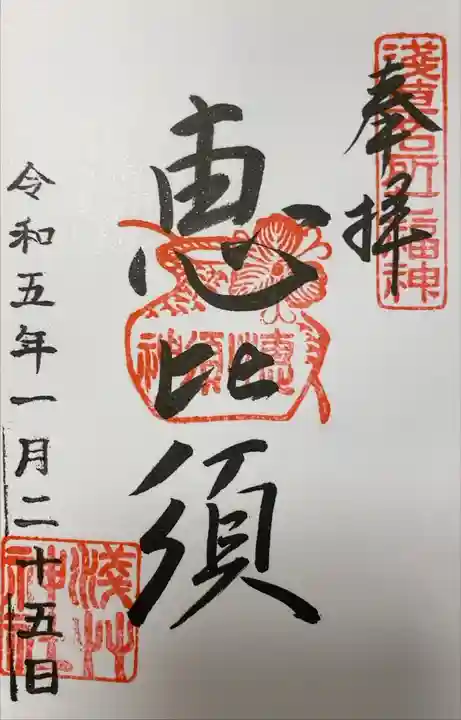 奉拝
浅草名所七福神
恵比須
恵比須神
令和五年一月二十五日
浅草神社